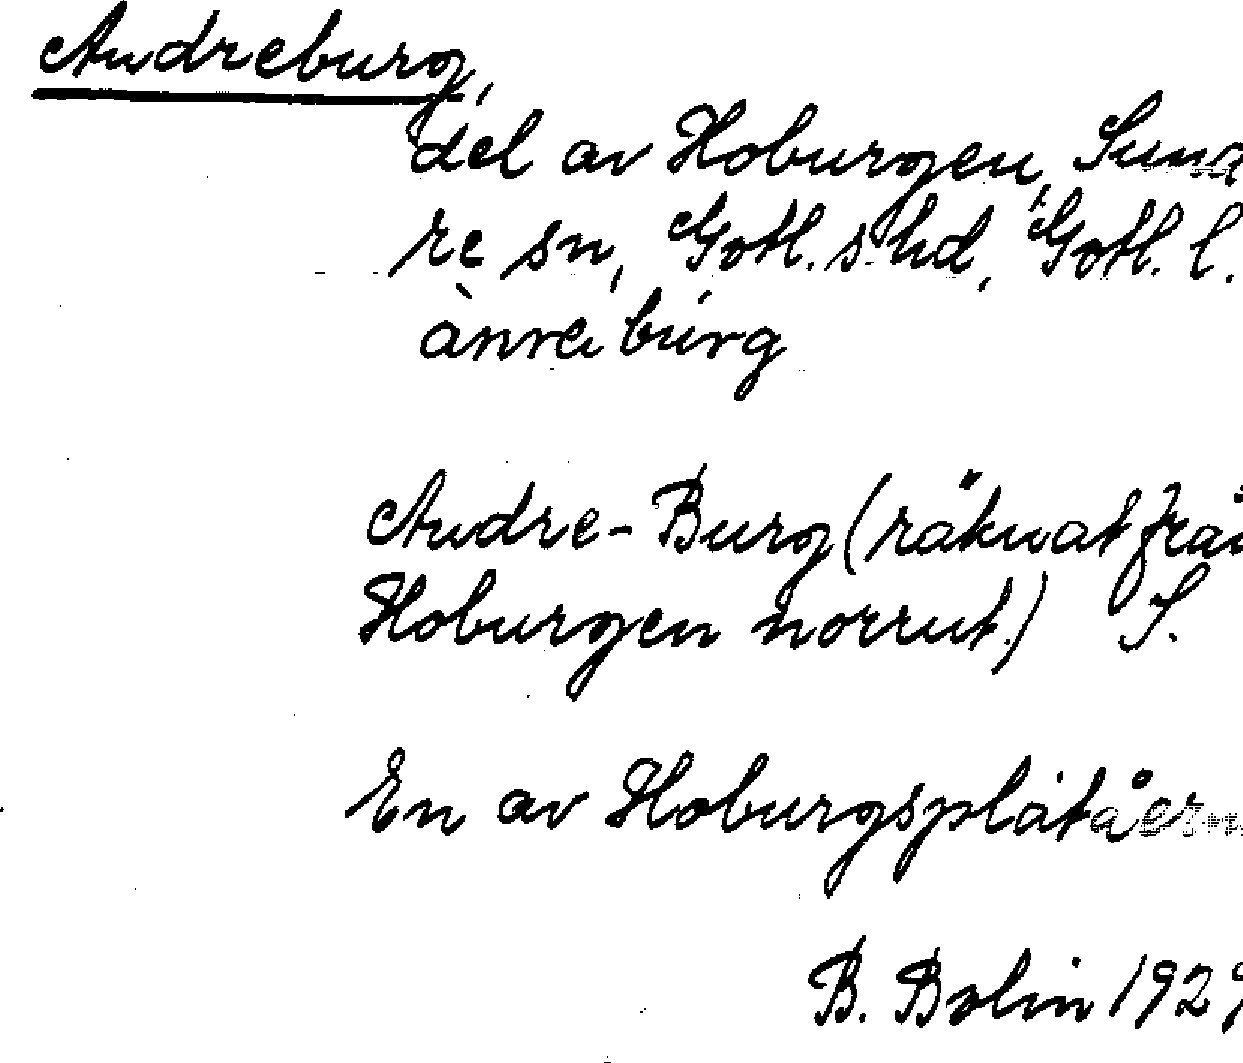 Andreburg,
del av Hoburgen, Sund
re sn, Gotl. s. hd, Gotl. l.
ànreibúrg
Andre-Burg (räknat från
Hoburgen norrut.) S.
En av Hoburgsplatåern
B. Bolin 1929